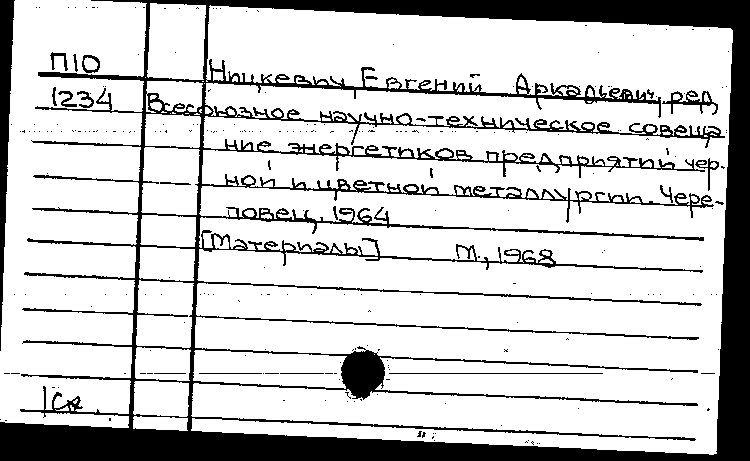 П10
Ницкевич, Евгений Аркадьевич, ред.
1234 Всесоюзное научно-техническое совеща
ние энергетиков предприятий чер-
ной и цветной металлургии. Чере-
повец, 1964
[Материалы] М., 1968